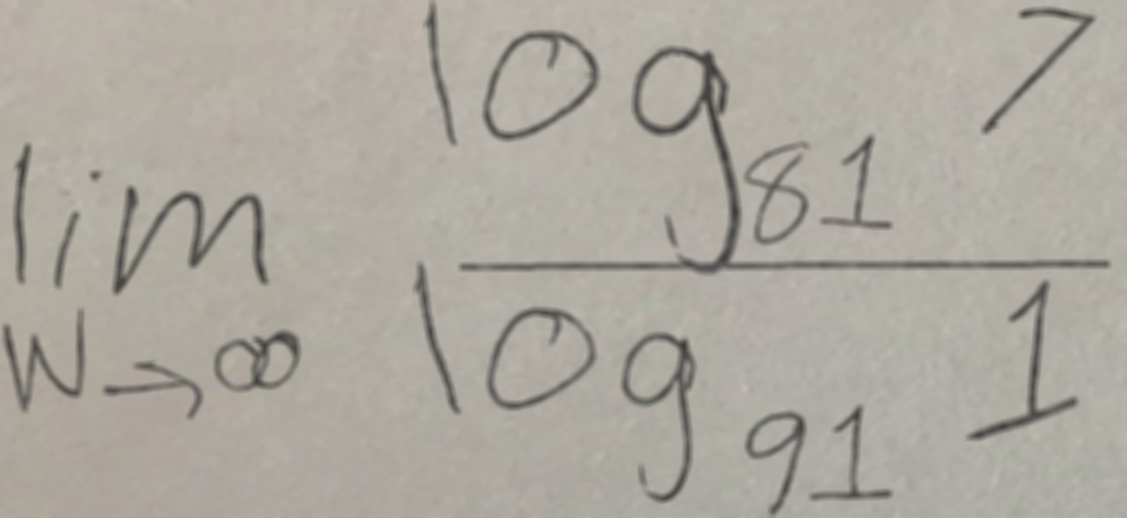 lim w→∞ log₈₁ 7
log₉₁ 1